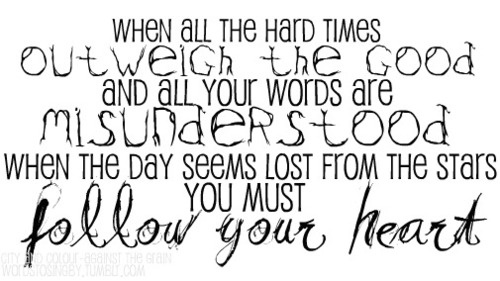 WHEN ALL THE HARD TIMES
OUTWEIGH THE GOOD
AND ALL YOUR WORDS ARE
MISUNDERSTOOD
WHEN THE DAY SEEMS LOST FROM THE STARS
YOU MUST
follow your heart
CITY AND COLOUR-AGAINST THE GRAIN
WORDSTOSINGBY.TUMBLR.COM